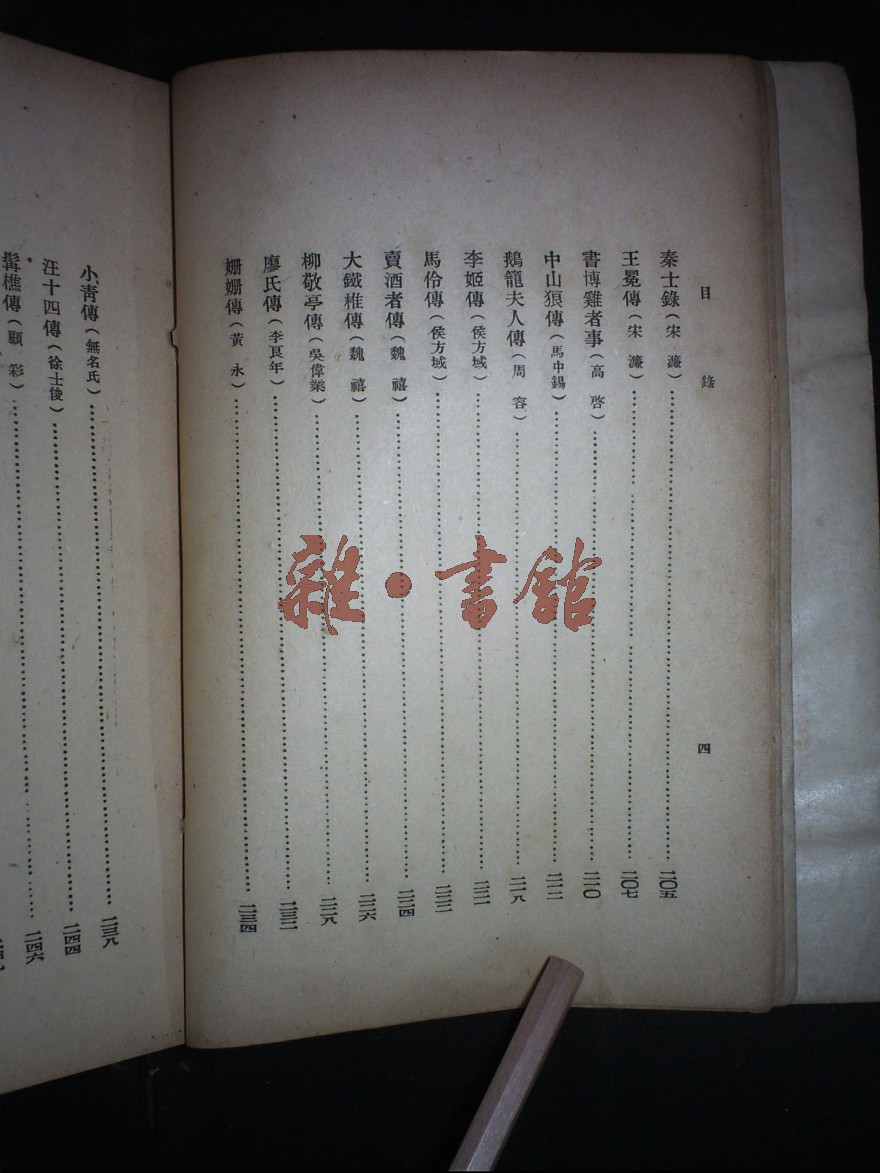 目錄
四
秦士錄（宋濂）……二〇五
王冕傳（宋濂）……二〇七
書博雞者事（高啓）……二一〇
中山狼傳（馬中錫）……二一二
鵝籠夫人傳（周容）……二一八
李姬傳（侯方域）……二二一
馬伶傳（侯方域）……二二二
賣酒者傳（魏禧）……二二四
大鐵椎傳（魏禧）……二二六
柳敬亭傳（吳偉業）……二二八
廖氏傳（李良年）……二三二
姍姍傳（黃永）……二三四
小靑傳（無名氏）……二三八
汪十四傳（徐士俊）……二四四
髯樵傳（顧彩）……二四六
雜·書館